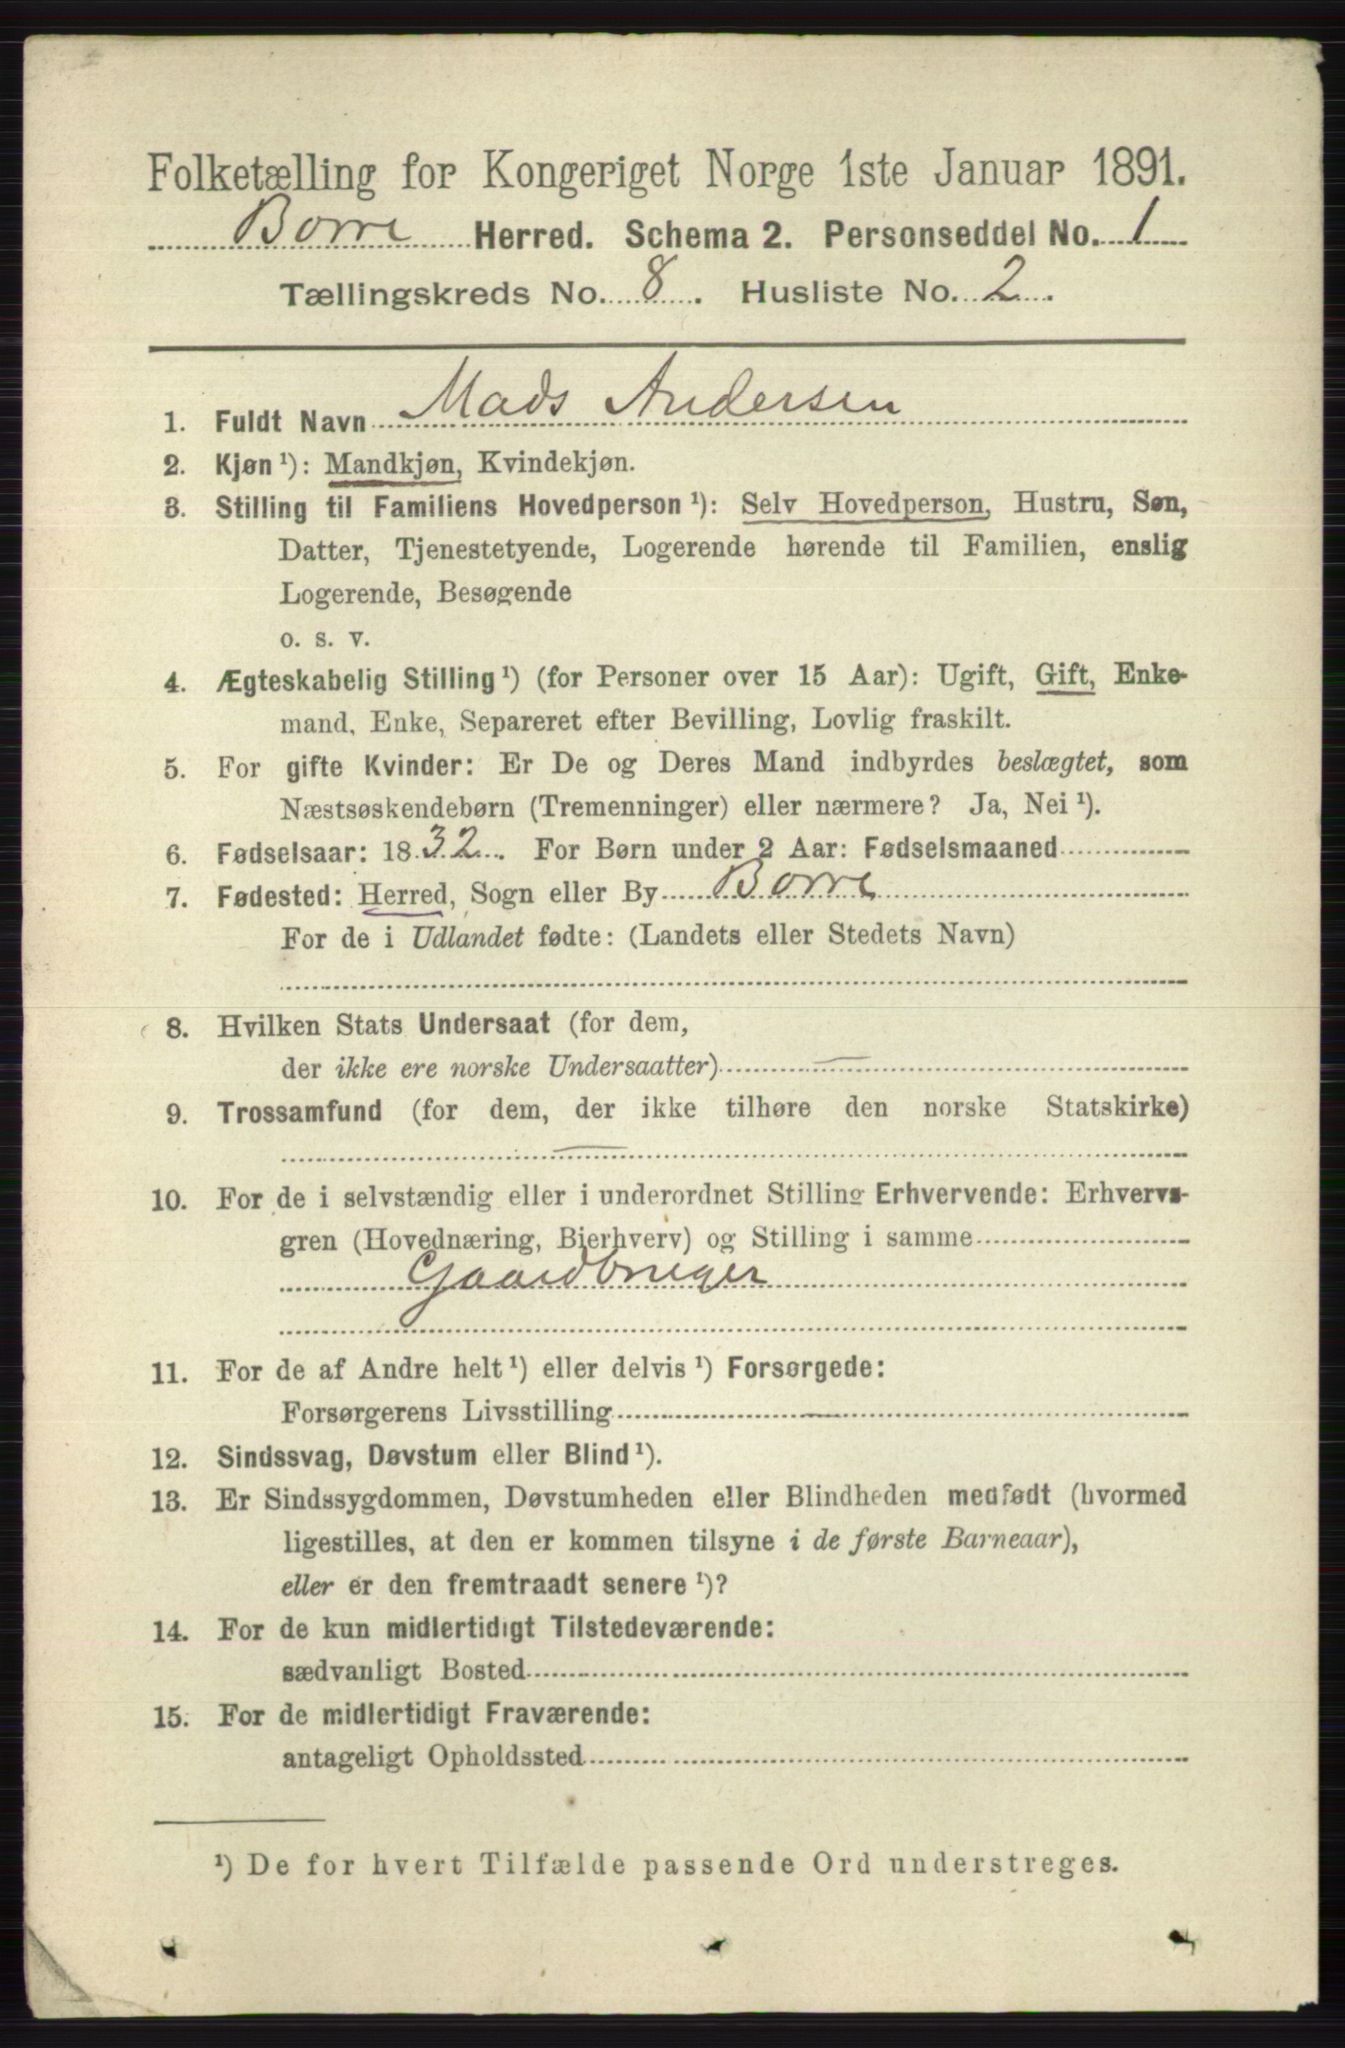 Folketælling for Kongeriget Norge 1ste Januar 1891.
Borre Herred. Schema 2. Personseddel No. 1
Tællingskreds No. 8. Husliste No. 2.
1. Fuldt Navn Mads Andersen
2. Kjøn ¹): Mandkjøn, Kvindekjøn.
3. Stilling til Familiens Hovedperson ¹): Selv Hovedperson, Hustru, Søn,
Datter, Tjenestetyende, Logerende hørende til Familien, enslig
Logerende, Besøgende
o. s. v.
4. Ægteskabelig Stilling ¹) (for Personer over 15 Aar): Ugift, Gift, Enke-
mand, Enke, Separeret efter Bevilling, Lovlig fraskilt.
5. For gifte Kvinder: Er De og Deres Mand indbyrdes beslægtet, som
Næstsøskendebørn (Tremenninger) eller nærmere? Ja, Nei ¹).
6. Fødselsaar: 1832. For Børn under 2 Aar: Fødselsmaaned
7. Fødested: Herred, Sogn eller By Borre
For de i Udlandet fødte: (Landets eller Stedets Navn)
8. Hvilken Stats Undersaat (for dem,
der ikke ere norske Undersaatter) —
9. Trossamfund (for dem, der ikke tilhøre den norske Statskirke)
—
10. For de i selvstændig eller i underordnet Stilling Erhvervende: Erhvervs-
gren (Hovednæring, Bierhverv) og Stilling i samme
Gaardbruger
11. For de af Andre helt ¹) eller delvis ¹) Forsørgede:
Forsørgerens Livsstilling —
12. Sindssvag, Døvstum eller Blind ¹).
13. Er Sindssygdommen, Døvstumheden eller Blindheden medfødt (hvormed
ligestilles, at den er kommen tilsyne i de første Barneaar),
eller er den fremtraadt senere ¹)?
14. For de kun midlertidigt Tilstedeværende:
sædvanligt Bosted
15. For de midlertidigt Fraværende:
antageligt Opholdssted
¹) De for hvert Tilfælde passende Ord understreges.